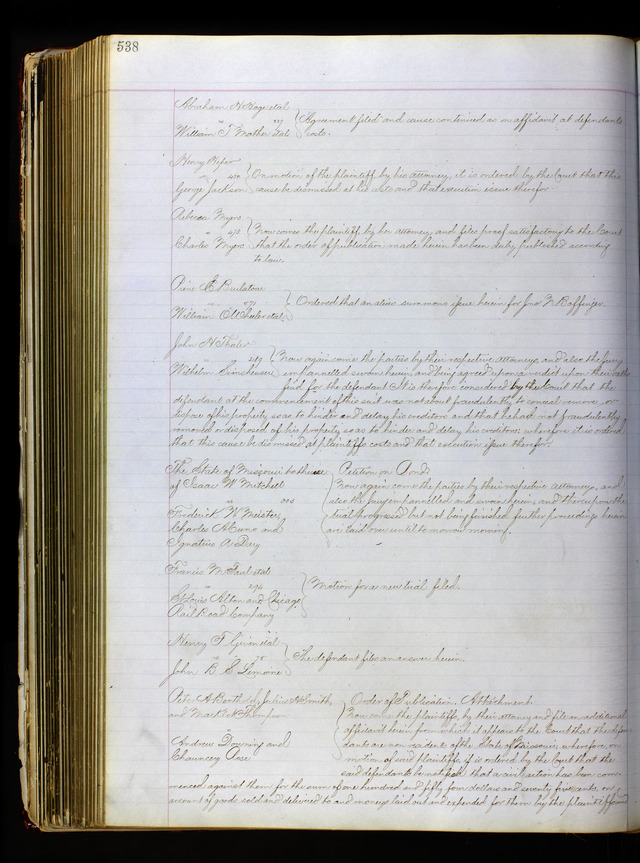 538
Abraham N Page et al
vs
William T Mather et al
Agreement filed and cause continued as on affidavit at defendants
costs.
Henry Wiser
vs
George Jackson
On motion of the plaintiff by his attorney, it is ordered by the Court that this
cause be dismissed at his costs and that execution issue therefor.
Rebecca Myers
vs
Charles Myers
Now comes the plaintiff by her attorney, and files proof satisfactory to the Court
that the order of publication made herein has been duly published according
to law.
vs
William
Ordered that an alias summons issue herein for Jno N Boffinger.
John H Thaler
vs
Wilhelm
Now again come the parties by their respective attorneys and also the Jury
empannelled sworn herein and being agreed upon a verdict upon their oaths
find for the defendant It is therefore considered by the Court that the
defendant at the commencement of this suit was not about fraudulently to conceal remove or
dispose of his property so as to hinder and delay his creditors and that he had not fraudulently
removed or disposed of his property so as to hinder and delay his creditors wherefore it is ordered
that this cause be dismissed at plaintiffs costs and that execution issue therefor.
The State of Missouri to the use
of Isaac W Mitchell
vs
Frederick W Meister
Charles A and
Ignatius A
Petition on Bond
Now again come the parties by their respective attorneys, and
also the Jury empannelled and sworn herein, and thereupon the
trial progressed but not being finished further proceedings herein
are laid over until tomorrow morning.
Francis M Paul et al
vs
St Louis Alton and Chicago
Rail Road Company
Motion for a new trial filed.
Henry T et al
vs
John B S Lemoine
The defendant files an answer herein.
Peter A Berthold, Julius N Smith,
and Mack N Thompson
vs
Andrew Downing and
Chauncey Case
Order of Publication Attachment.
Now come the plaintiffs, by their attorney and file an additional
affidavit herein from which it appears to the Court that the defen
dants are non residents of the State of Missouri, wherefore, on
motion of said plaintiffs, it is ordered by the Court that the
said defendants be notified that a civil action has been com-
menced against them for the sum of one hundred and fifty four dollars and seventy five cents, on
account of goods sold and delivered to and moneys laid out and expended for them by the plaintiffs